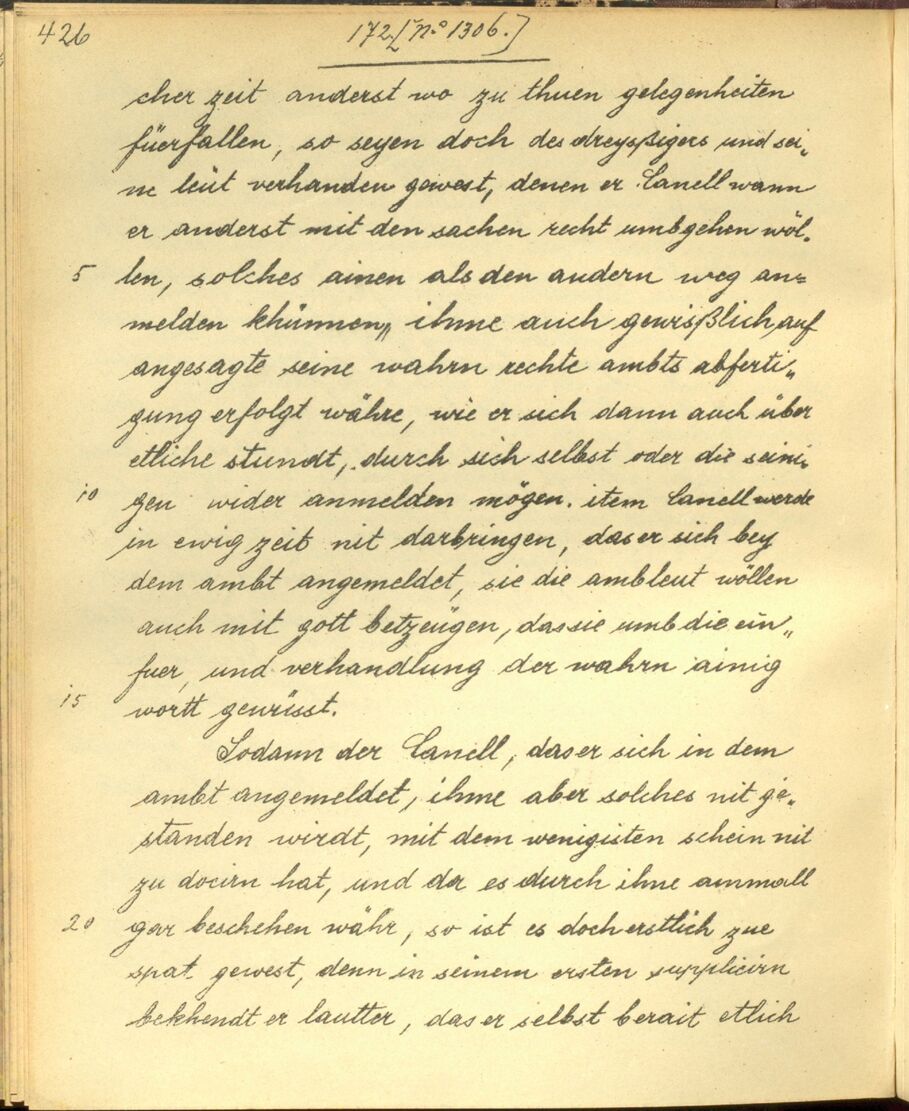 426
172 [No 1306.]
cher zeit anderst wo zu thuen gelegenheiten
füerfallen, so seyen doch des dreysßigers und sei„
ne leüt verhanden gewest, denen er Canell wann
er anderst mit den sachen recht umbgehen wöl„
5 len, solches ainen als den andern weg an=
melden khünnen„ ihme auch gewisßlich auf
angesagte seine wahrn rechte ambts abferti„
gung erfolgt währe, wie er sich dann auch über
etliche stundt, durch sich selbst oder die seini„
10 gen wider anmelden mögen. item Canell werde
in ewig zeit nit darbringen, das er sich bey
dem ambt angemeldet, sie die ambleut wöllen
auch mit gott betzeügen, das sie umb die ein„
fuer, und verhandlung der wahrn ainig
15 wortt gewüsst.
Sodann der Canell, das er sich in dem
ambt angemeldet, ihme aber solches nit ge„
standen wirdt, mit dem wenigisten schein nit
zu docirn hat, und da es durch ihne ainmall
20 gar beschehen währ, so ist es doch erstlich zue
spat gewest, denn in seinem ersten supplicirn
bekhendt er lautter, das er selbst berait etlich